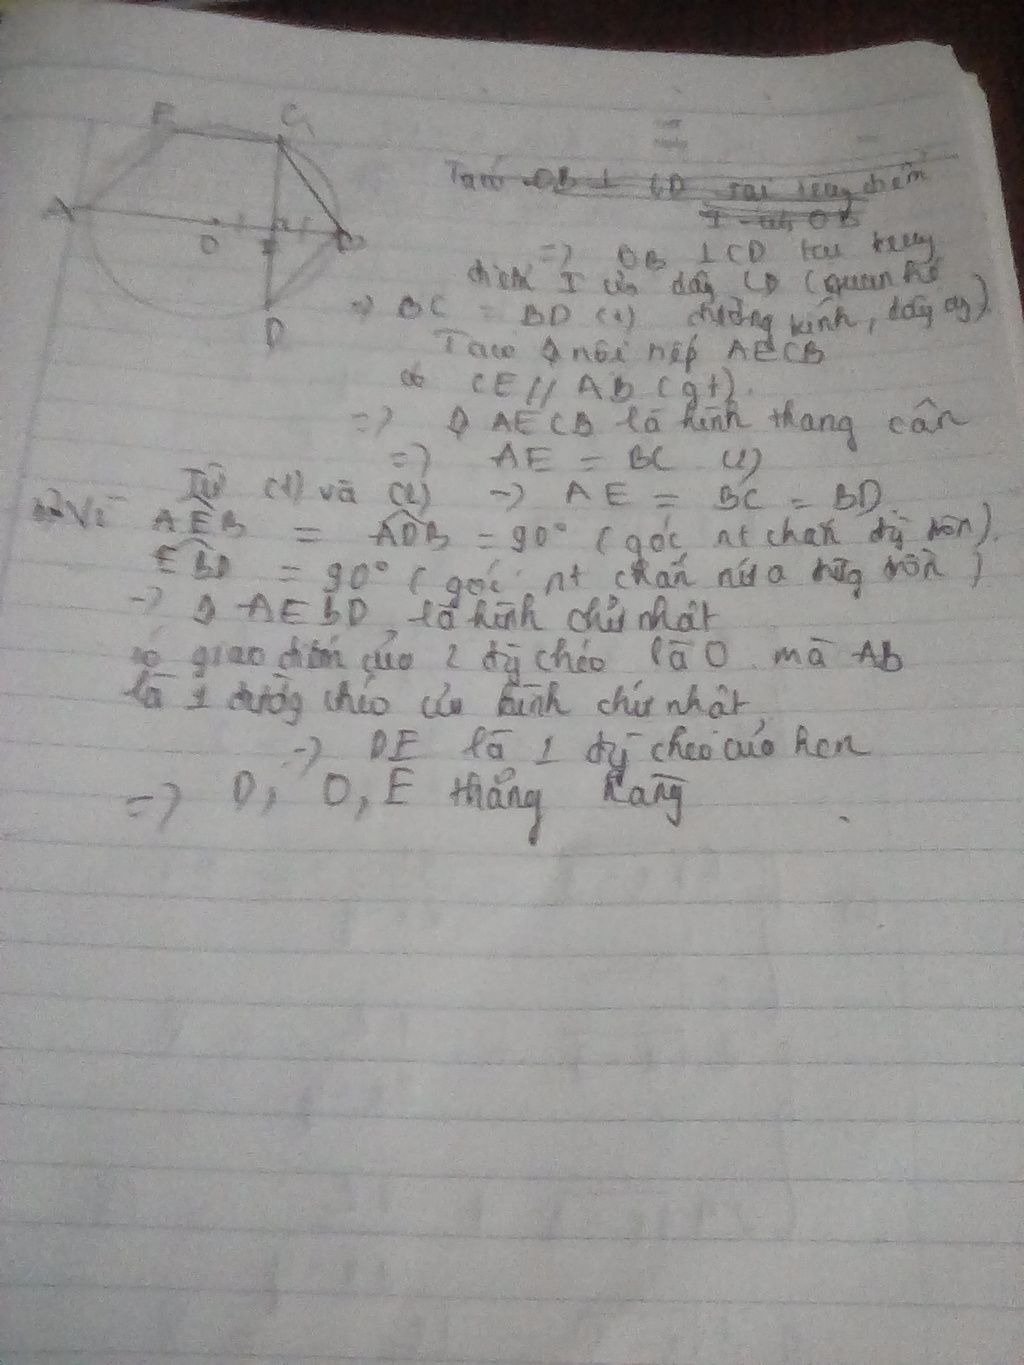 E C
A O I B
D
Ta có OB ⊥ CD tại trung điểm
I của OB
=> OB ⊥ CD tại trung
điểm I của dây CD (quan hệ
=> BC = BD (1) đường kính, dây cg)
Ta có ◊ nội tiếp AECB
có CE // AB (gt).
=> ◊ AECB là hình thang cân
=> AE = BC (2)
Từ (1) và (2) -> AE = BC = BD
Vì AEB = ADB = 90° (góc nt chắn đg tròn).
EBD = 90° (góc nt chắn nửa đg tròn)
-> ◊ AEBD là hình chữ nhật
có giao điểm của 2 đg chéo là O mà AB
là 1 đường chéo của hình chữ nhật
-> DE là 1 đg chéo của hcn
=> D, O, E thẳng hàng